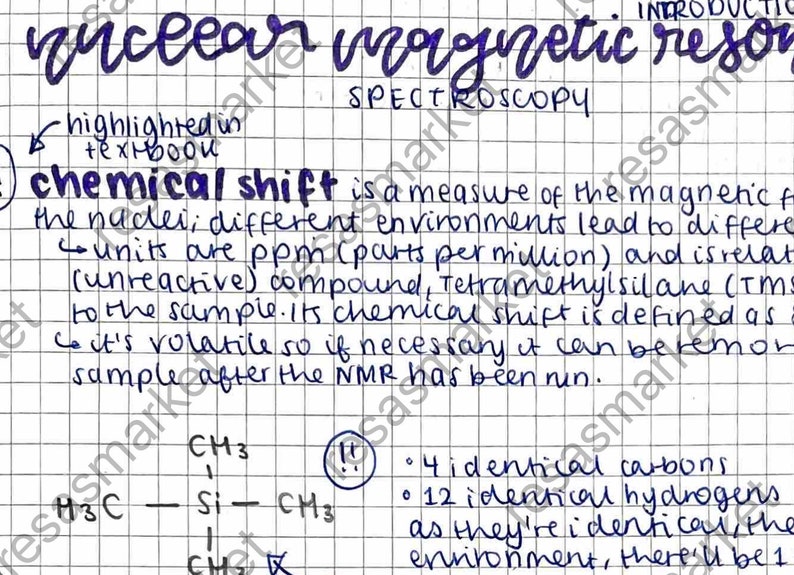 INTRODUCTIO
nuclear magnetic reson
SPECTROSCOPY
highlighted in
textbook
chemical shift is a measure of the magnetic f
the nuclei; different environments lead to differe
↳ units are ppm (parts per million) and is relat
(unreactive) compound, Tetramethylsilane (TMS
to the sample. Its chemical shift is defined as
↳ it's volatile so if necessary it can be remov
sample after the NMR has been run.
CH3
!!
• 4 identical carbons
H3C — Si — CH3
• 12 identical hydrogens
as they're identical, the
CH3
environment, there'll be 1
resasmarket
resasmarket
resasmarket
resasmarket
resasmarket
resasmarket
resasmarket